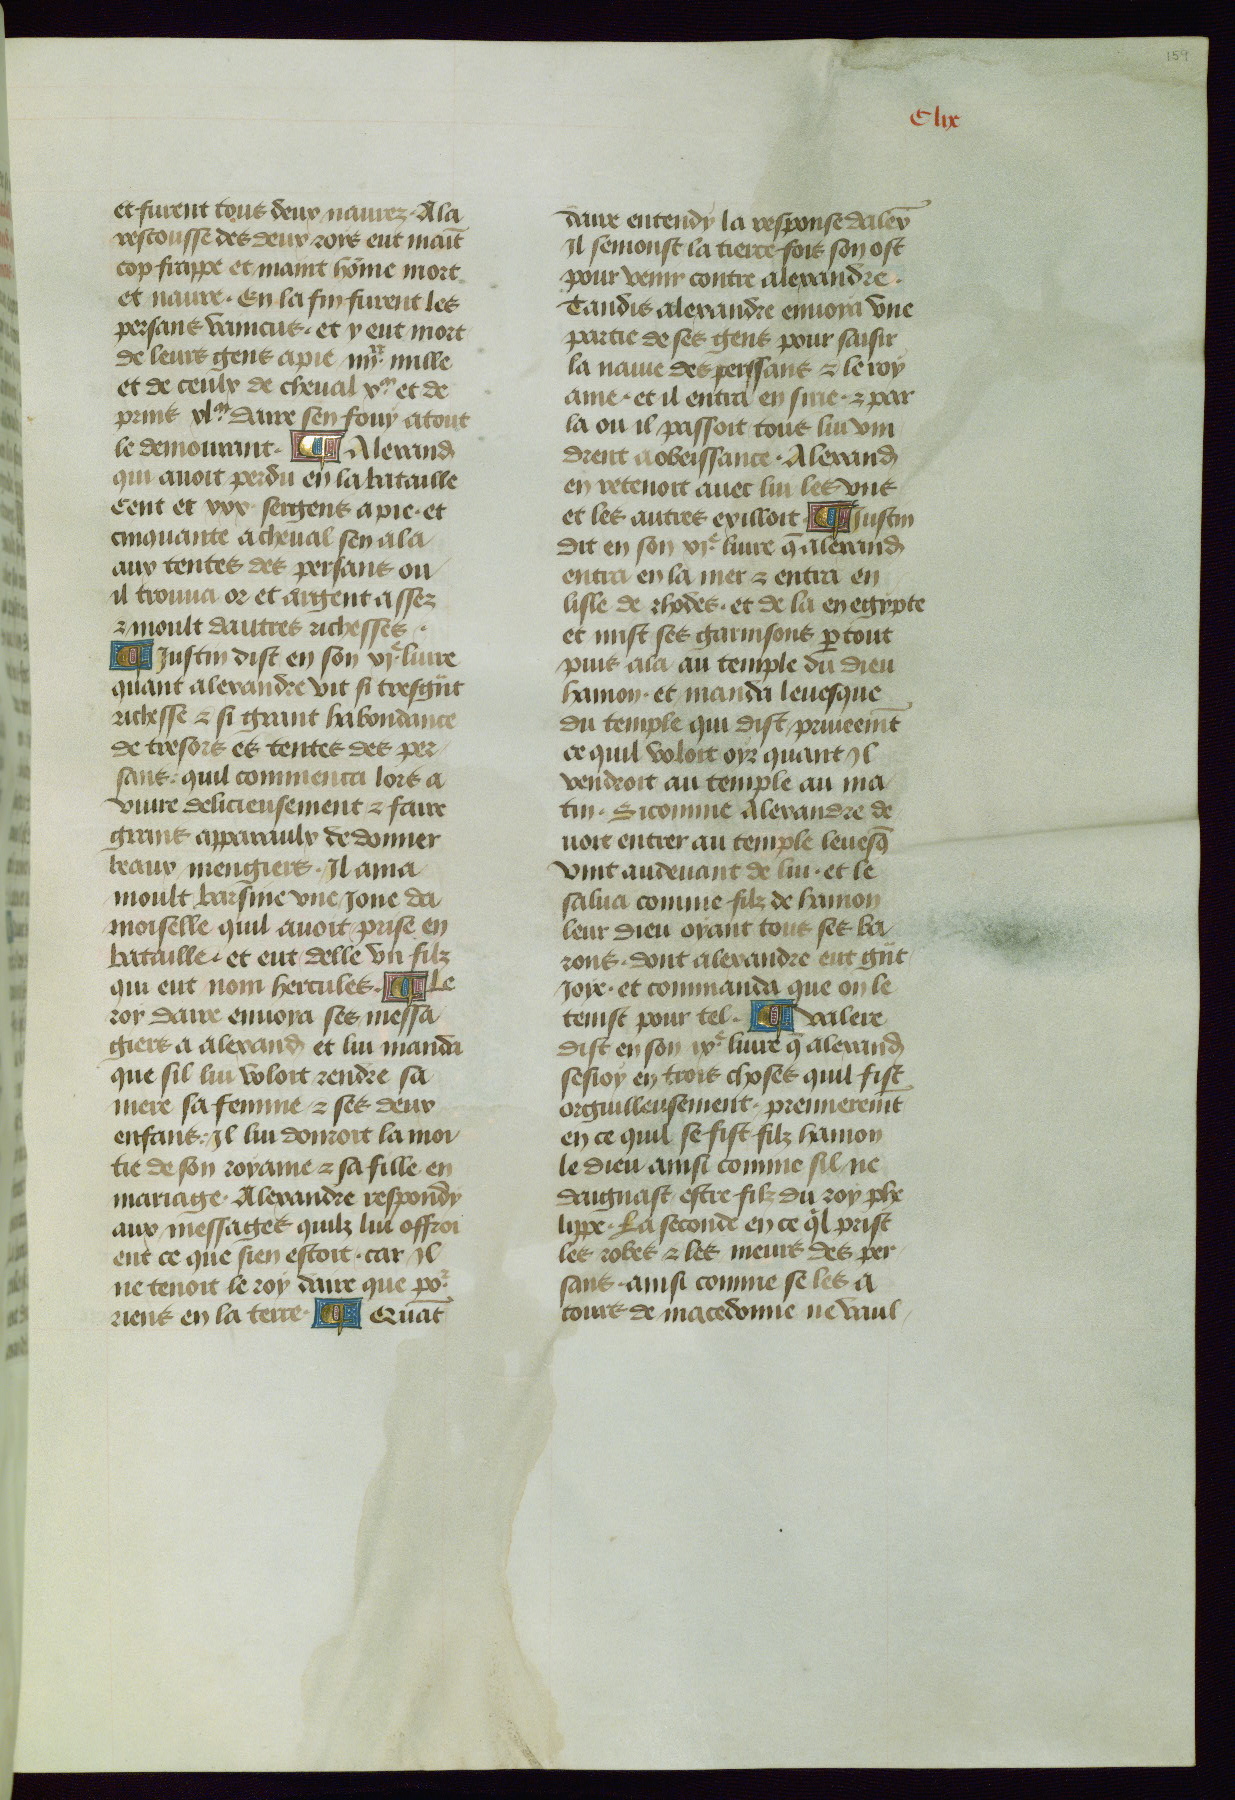 159
C lix
et furent tous deux naurez. A la
rescousse des deux roys eut maīt
cop frappe et maint hōme mort
et naure. En la fin furent les
persans vaincus. et y eut mort
de leurs gens a pie iiijˣˣ. mille
et de ceulx de cheval xᵐ et de
prins xlᵐ daire sen fouy a tout
le demourant. ¶ Alexand̄
qui auoit perdu en la bataille
Cent et xxx sergens a pie. et
cinquante a cheual sen ala
aux tentes des persans ou
il trouua or et argent assez
⁊ moult dautres richesses.
¶ Justin dist en son xjᵉ. liure
quant alexandre vit si tresgāt
richesse ⁊ si grant habondance
de tresors es tentes des per
sans. quil commenca lors a
viure delicieusement ⁊ faire
grans apparaulx de donner
beaux mengiers. Il ama
moult barsine vne Jone da
moiselle quil auoit prise en
bataille. et eut delle vn filz
qui eut nom hercules. ¶ Le
roy daire enuoya ses messa
giers a alexand̄ et lui manda
que sil lui voloit rendre sa
mere sa femme ⁊ ses deux
enfans. Il lui donroit la moi
tie de son royame ⁊ sa fille en
mariage. Alexandre respondy
aux messages quilz lui offroi
ent ce que sien estoit. car Il
ne tenoit le roy daire que poʳ
riens en la terre. ¶ Quāt
daire entendy la response dalex̄
Il semonst la tierce fois son ost
pour venir contre alexandre.
Tandis alexandre enuoya vne
partie de ses gens pour saisir
la nauie des perssans ⁊ le roy
ame. et il entra en sirie. ⁊ par
la ou il passoit tous lui vin
drent a obeissance. Alexand̄
en retenoit auec lui les vns
et les autres exilloit ¶ Justin
dit en son xjᵉ. liure q̄ alexand̄
entra en la mer ⁊ entra en
lisle de rhodes. et de la en egypte
et mist ses garnisons ꝑ tout
puis ala au temple du dieu
hamon. et manda leuesque
du temple qui dist priueemēt
ce quil voloit oyr quant Il
vendroit au temple au ma
tin. Si comme Alexandre de
uoit entrer au temple leuesq̄
vint audeuant de lui. et le
salua comme filz de hamon
leur dieu oyant tous ses ba
rons. dont alexandre eut gāt
Joye. et commanda que on le
tenist pour tel. ¶ valere
dist en son ixᵉ liure q̄ alexand̄
sesioy en trois choses quil fist
orguilleusement. premieremēt
en ce quil se fist filz hamon
le dieu ainsi comme sil ne
daignast estre filz du roy phe
lippe. La seconde en ce q̄l prist
les robes ⁊ les meurs des per
sans. ainsi comme se les a
tours de macedonne ne vaul